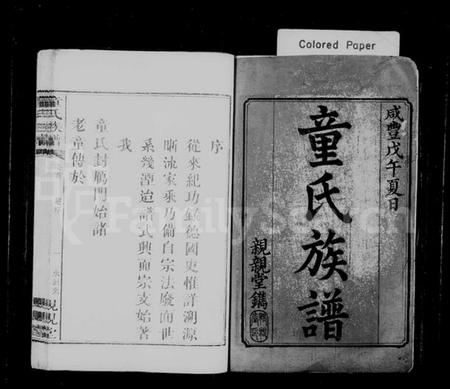 Colored Paper
咸豐戊午夏日
童氏族譜
親親堂鐫
序
從來紀功敘德國史惟詳溯源
晰流家乘乃備自宗法廢而世
系幾湮迨譜式興而宗支始著
我
童氏封鵬門始諸
老童傳於
FamilySearch